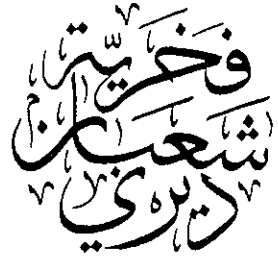 فخرية
شعبان
ديري